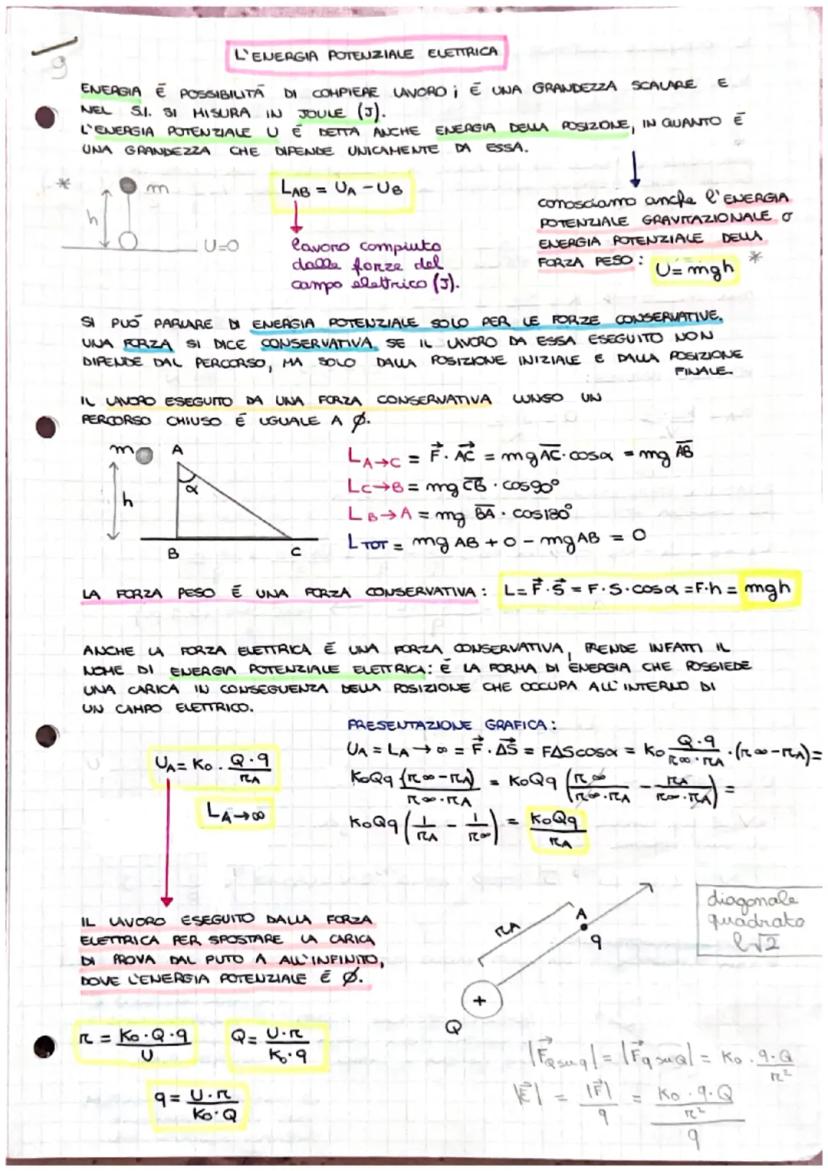 9
L'ENERGIA POTENZIALE ELETTRICA
ENERGIA È POSSIBILITÀ DI COMPIERE LAVORO; È UNA GRANDEZZA SCALARE E
NEL S.I. SI MISURA IN JOULE (J).
L'ENERGIA POTENZIALE U È DETTA ANCHE ENERGIA DELLA POSIZONE, IN QUANTO È
UNA GRANDEZZA CHE DIPENDE UNICAMENTE DA ESSA.
* m
h
U=0
LAB = UA - UB
lavoro compiuto
dalle forze del
campo elettrico (J).
conosciamo anche l'ENERGIA
POTENZIALE GRAVITAZIONALE O
ENERGIA POTENZIALE DELLA
FORZA PESO: U= mgh *
SI PUÒ PARLARE DI ENERGIA POTENZIALE SOLO PER LE FORZE CONSERVATIVE.
UNA FORZA SI DICE CONSERVATIVA SE IL LAVORO DA ESSA ESEGUITO NON
DIPENDE DAL PERCORSO, MA SOLO DALLA POSIZIONE INIZIALE E DALLA POSIZIONE
FINALE.
IL LAVORO ESEGUITO DA UNA FORZA CONSERVATIVA LUNGO UN
PERCORSO CHIUSO È UGUALE A Ø.
m A
α
h
B C
L A→C = F⃗ · AC⃗ = mg A̅C̅ · cosα = mg A̅B̅
L C→B = mg C̅B̅ · cos90°
L B→A = mg B̅A̅ · cos180°
L TOT = mg AB + 0 - mg AB = 0
LA FORZA PESO È UNA FORZA CONSERVATIVA: L= F⃗ · S⃗ = F · S · cosα = F·h = mgh
ANCHE LA FORZA ELETTRICA È UNA FORZA CONSERVATIVA, PRENDE INFATTI IL
NOME DI ENERGIA POTENZIALE ELETTRICA: È LA FORMA DI ENERGIA CHE POSSIEDE
UNA CARICA IN CONSEGUENZA DELLA POSIZIONE CHE OCCUPA ALL'INTERNO DI
UN CAMPO ELETTRICO.
PRESENTAZIONE GRAFICA:
UA = LA→∞ = F⃗ · ΔS⃗ = FΔScosα = K0 Q·q / r∞·rA · (r∞-rA)=
K0Qq (r∞-rA) / r∞·rA = K0Qq (r∞ / r∞·rA - rA / r∞·rA) =
K0Qq (1/rA - 1/r∞) = K0Qq / rA
UA = K0 · Q·q / rA
LA→∞
IL LAVORO ESEGUITO DALLA FORZA
ELETTRICA PER SPOSTARE LA CARICA
DI PROVA DAL PUTO A ALL'INFINITO,
DOVE L'ENERGIA POTENZIALE È Ø.
rA
A
q
+
Q
diagonale
quadrato
l√2
r = K0·Q·q / U
Q = U·r / K0·q
q = U·r / K0·Q
|F⃗Q su q| = |F⃗q su Q| = K0 · q·Q / r²
|E⃗| = |F⃗| / q = K0·q·Q / r² / q